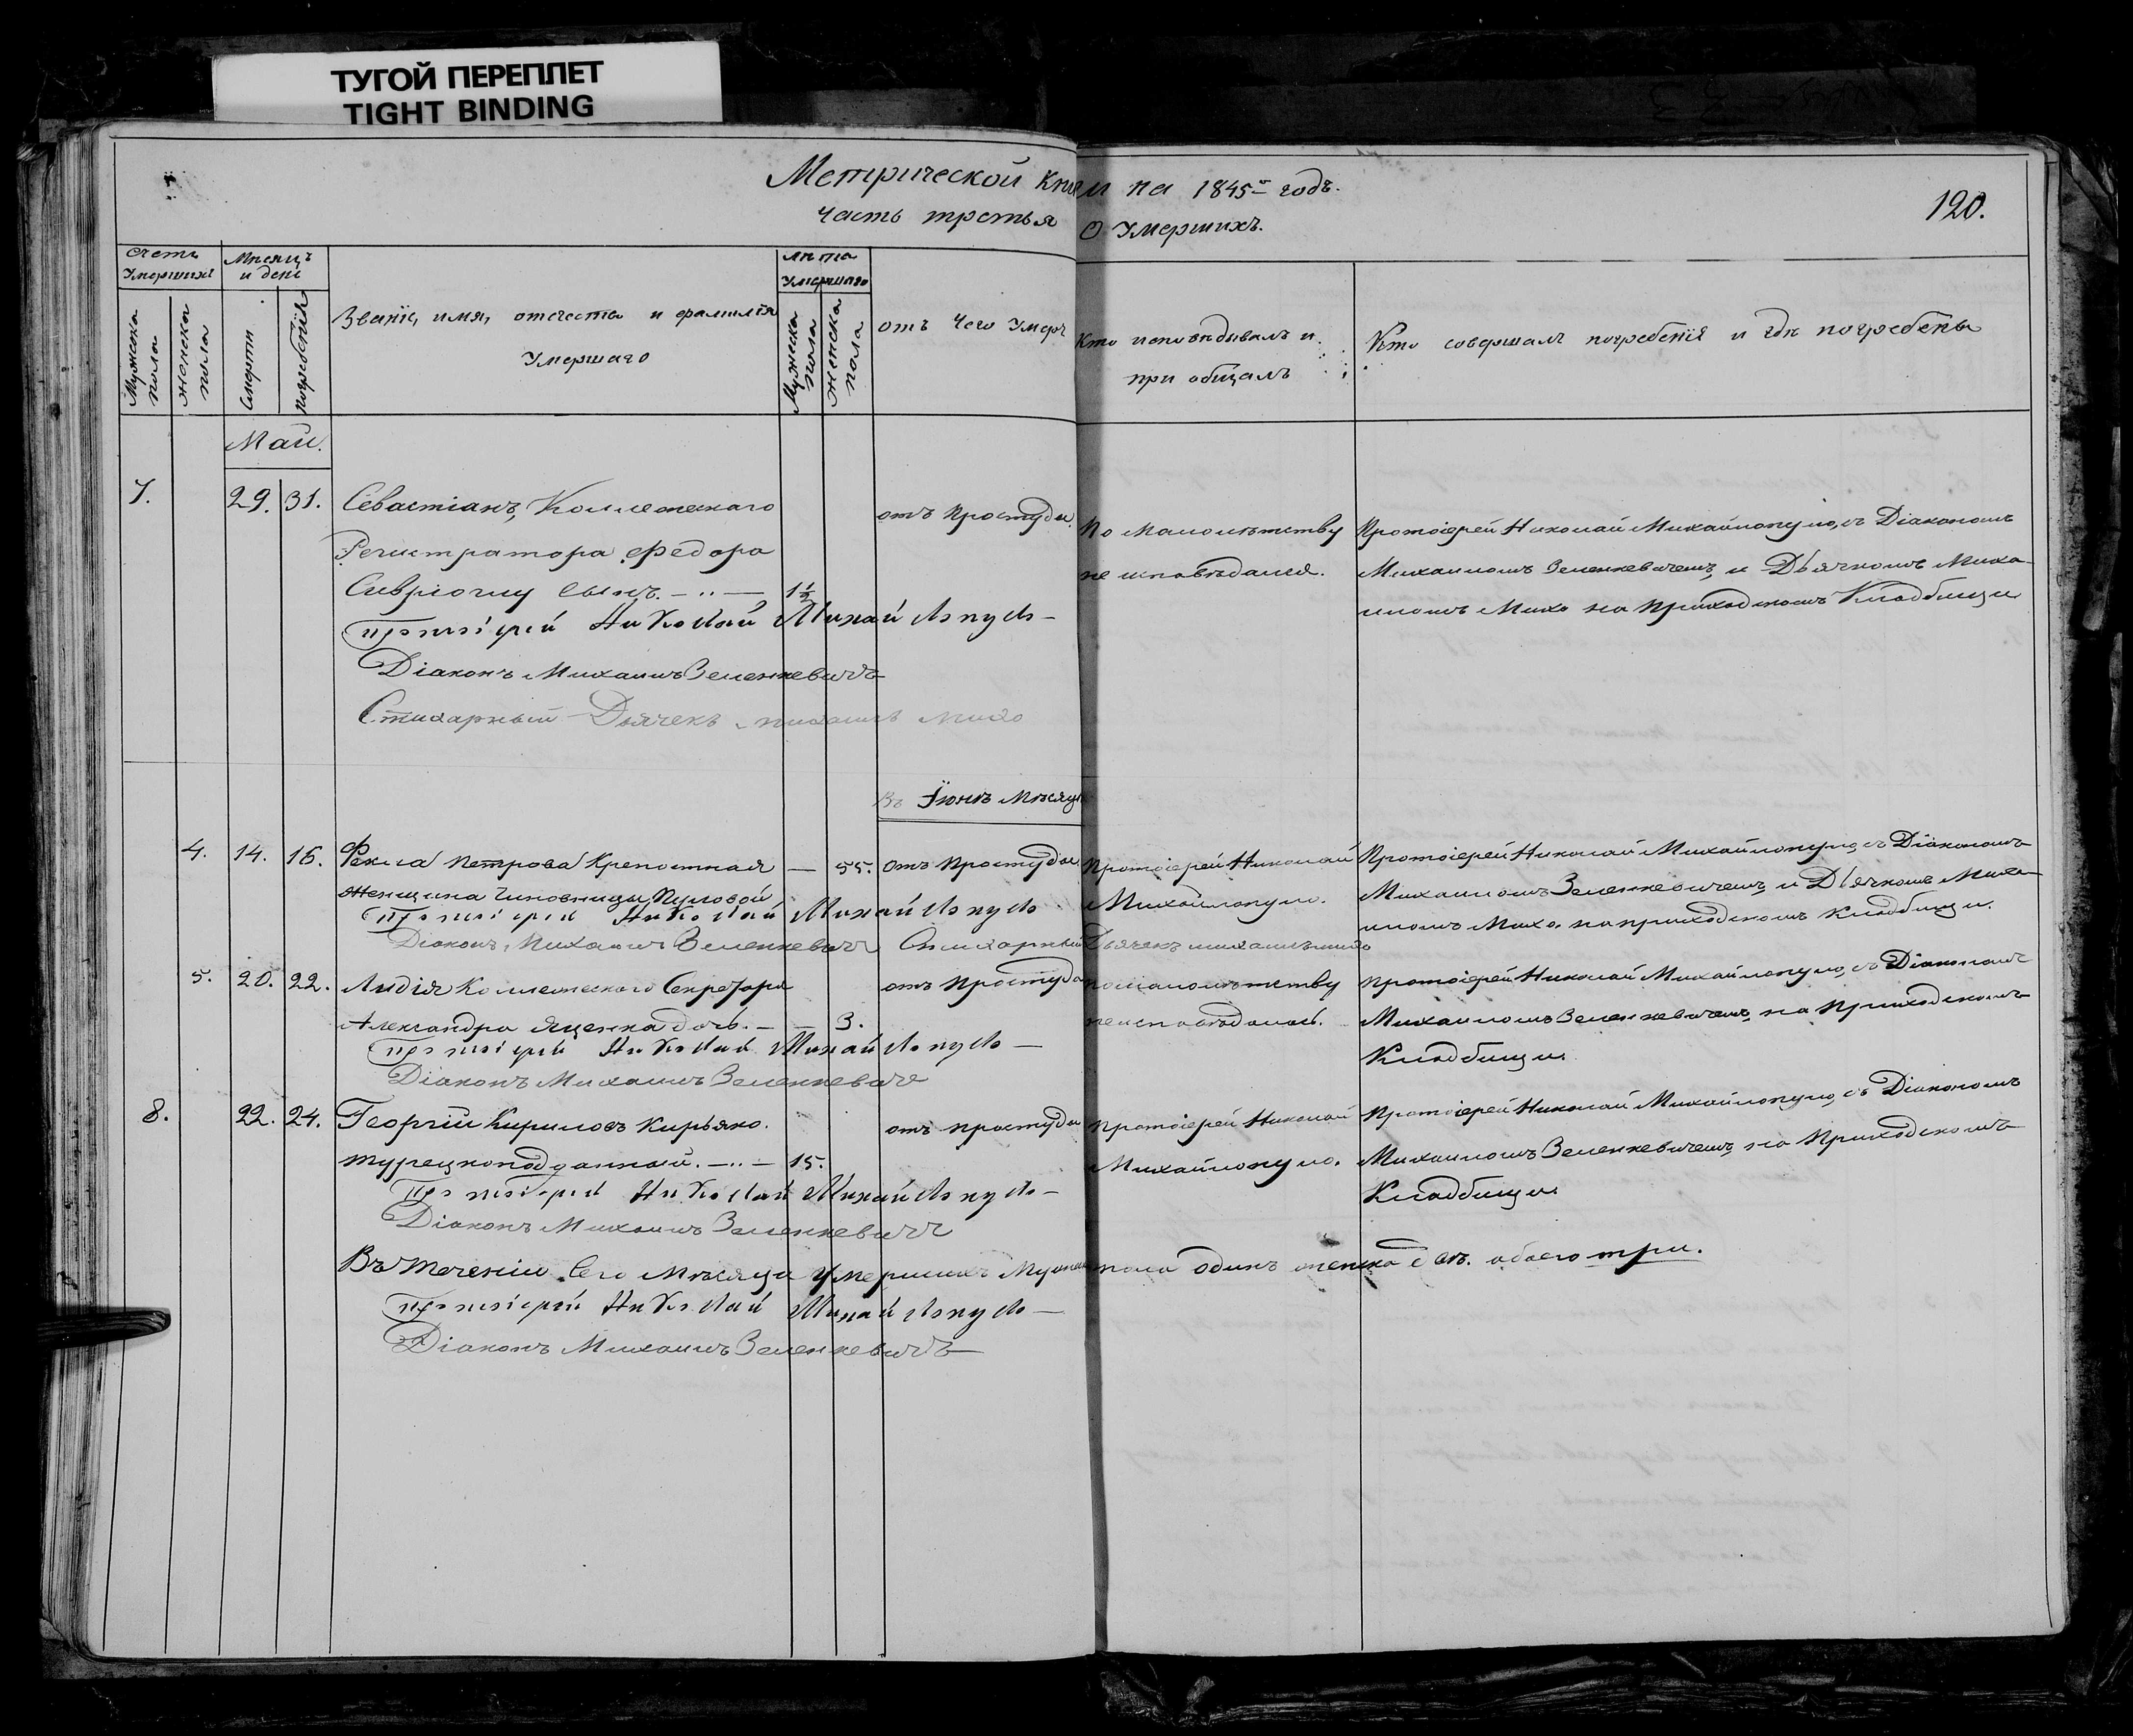 ТУГОЙ ПЕРЕПЛЕТ
TIGHT BINDING
Метрической книги на 1845й годъ.
120.
часть третья О Умершихъ.
Счетъ Умершихъ
Мужеска пола
женска пола
Мѣсяцъ и день
Смерти
погребенїя
Званіе, имя, отечество и фамилїя
Умершаго
лѣта Умершаго
Мужеска пола
женска пола
отъ Чего Умеръ
Кто исповѣдывалъ и
при общалъ
Кто совершалъ погребенїя и гдѣ погребены
Май.
7. 29. 31. Севастіанъ, Коллежскаго
Регистратора Федора
сынъ. 1½
отъ простуды.
По малолѣтству
не исповѣдался.
Протоіерей Николай Михайлопуло, съ Діакономъ
Михаиломъ Зеленкевичемъ, и Дьячкомъ Миха-
иломъ Михо на приходскомъ Кладбищи
Протоіерей Николай Михайлопуло
Діаконъ Михаилъ Зеленкевичъ
Стихарный Дьячекъ михаилъ михо
Въ Їюнѣ мѣсяцѣ
4. 14. 16. Фекла Петрова Крепостная — 55.
женщина чиновницы
отъ простуды
Протоіерей Николай
Михайлопуло.
Протоіерей Николай Михайлопуло, съ Діакономъ
Михаиломъ Зеленкевичемъ и Дьячкомъ Миха-
иломъ Михо. на приходскомъ кладбищи.
Протоіерей Николай Михайлопуло
Діаконъ, Михаилъ Зеленкевичъ Стихарный Дьячекъ михаилъ михо
5. 20. 22. Лидія Коллежскаго Секретаря
Александра Яценка дочь. — 3.
отъ простуды
по малолѣтству
не исповѣдалась.
Протоіерей Николай Михайлопуло, съ Діакономъ
Михаиломъ Зеленкевичемъ, на Приходскомъ
Кладбищи
Протоіерей Николай Михайлопуло
Діаконъ Михаилъ Зеленкевичъ
8. 22. 24. Георгїй Кириловъ Кирьяко.
турецкоподданный. 15.
отъ простуды
Протоіерей Николай
Михайлопуло.
Протоіерей Николай Михайлопуло, съ Діакономъ
Михаиломъ Зеленкевичемъ, на Приходскомъ
Кладбищи
Протоіерей Николай Михайлопуло
Діаконъ Михаилъ Зеленкевичъ
Въ теченіи Сего мѣсяца Умершихъ Мужеска пола одинъ женска двѣ. обоего три.
Протоіерей Николай Михайлопуло
Діаконъ Михаилъ Зеленкевичъ